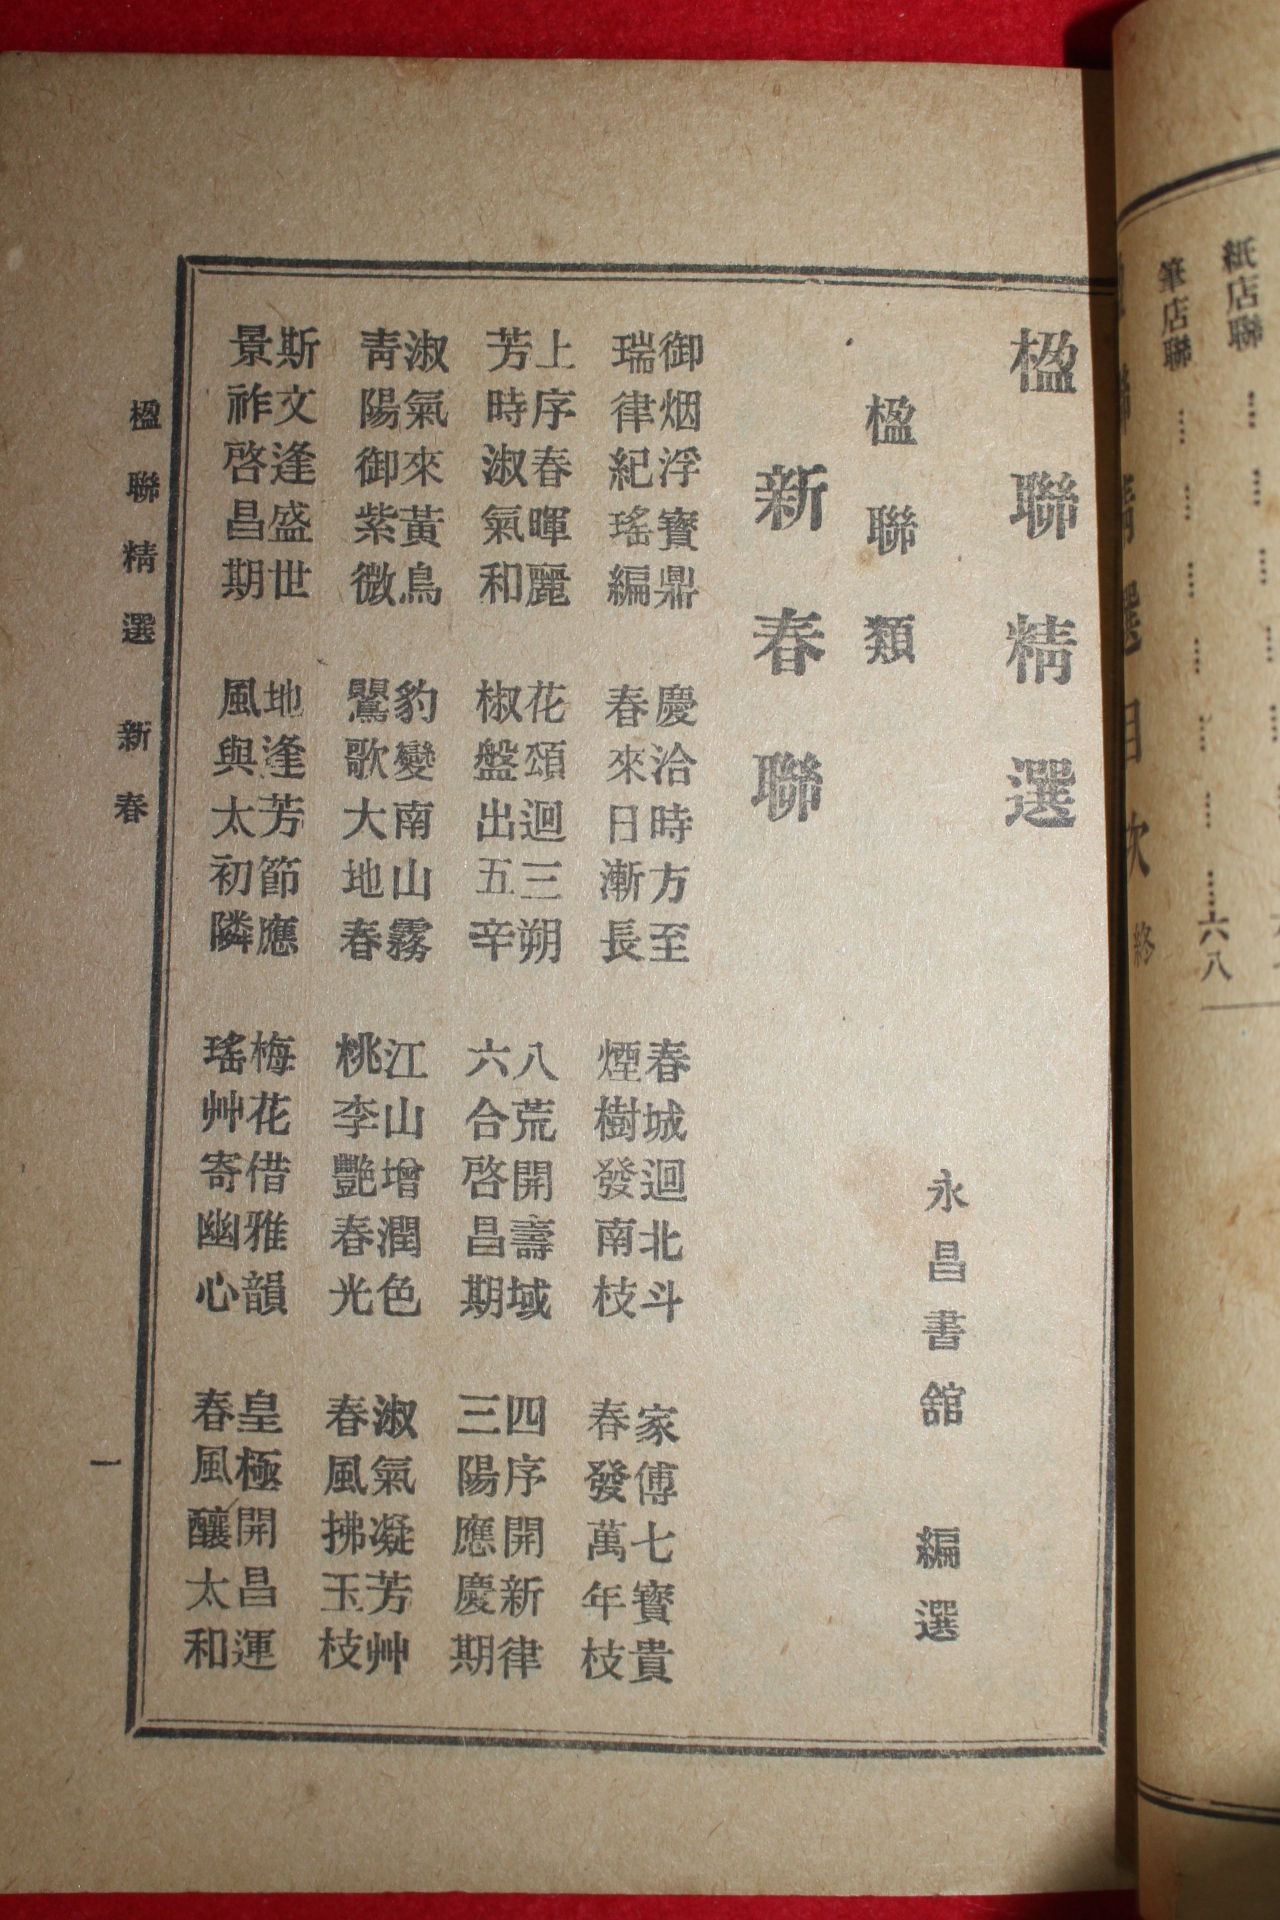 紙店聯
筆店聯
六八
目次 終
楹聯精選
永昌書舘 編選
楹聯類
新春聯
御烟浮寶鼎 慶洽時方至 春城迴北斗 家傳七寶貴
瑞律紀瑤編 春來日漸長 煙樹發南枝 春發萬年枝
上序春暉麗 花頌迴三朔 八荒開壽域 四序開新律
芳時淑氣和 椒盤出五辛 六合啓昌期 三陽應慶期
淑氣來黃鳥 豹變南山霧 江山增潤色 淑氣凝芳艸
靑陽御紫微 鸎歌大地春 桃李艷春光 春風拂玉枝
斯文逢盛世 地逢芳節應 梅花借雅韻 皇極開昌運
景祚啓昌期 風與太初隣 瑤艸寄幽心 春風釀太和
楹聯精選 新春
一